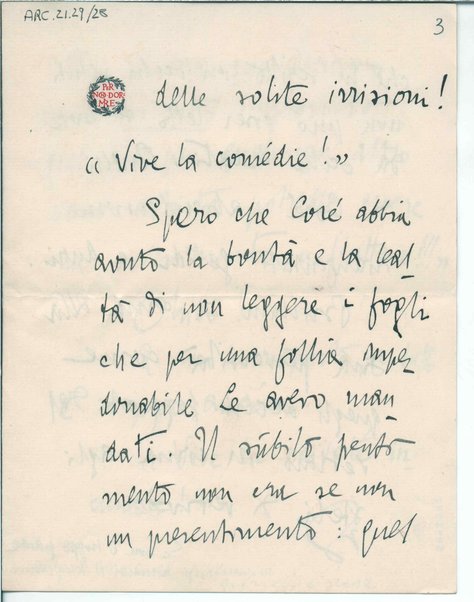 ARC.21.29/2B
3
PER
NON DOR
MIRE
delle solite irrisioni!
« Vive la comédie! »
Spero che Coré abbia
avuto la bontà e la leal
tà di non leggere i fogli
che per una follia imper
donabile Le avevo man
dati. Il sùbito penti
mento non era se non
un presentimento: quel